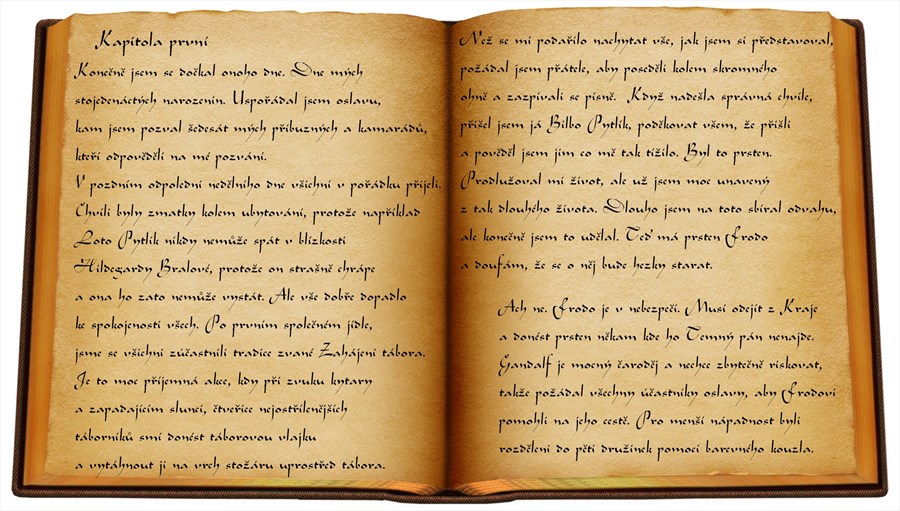 Kapitola první
Konečně jsem se dočkal onoho dne. Dne mých
stojedenáctých narozenin. Uspořádal jsem oslavu,
kam jsem pozval šedesát mých příbuzných a kamarádů,
kteří odpověděli na mé pozvání.
V pozdním odpoledni nedělního dne všichni v pořádku přijeli.
Chvíli byly zmatky kolem ubytování, protože například
Loto Pytlík nikdy nemůže spát v blízkosti
Hildegardy Bralové, protože on strašně chrápe
a ona ho zato nemůže vystát. Ale vše dobře dopadlo
ke spokojenosti všech. Po prvním společném jídle,
jsme se všichni zúčastnili tradice zvané Zahájení tábora.
Je to moc příjemná akce, kdy při zvuku kytary
a zapadajícím slunci, čtveřice nejostřílenějších
táborníků smí donést táborovou vlajku
a vytáhnout ji na vrch stožáru uprostřed tábora.
Než se mi podařilo nachytat vše, jak jsem si představoval,
požádal jsem přátele, aby poseděli kolem skromného
ohně a zazpívali se písně. Když nadešla správná chvíle,
přišel jsem já Bilbo Pytlík, poděkovat všem, že přišli
a pověděl jsem jim co mě tak tížilo. Byl to prsten.
Prodlužoval mi život, ale už jsem moc unavený
z tak dlouhého života. Dlouho jsem na toto sbíral odvahu,
ale konečně jsem to udělal. Teď má prsten Frodo
a doufám, že se o něj bude hezky starat.
Ach ne. Frodo je v nebezpečí. Musí odejít z Kraje
a donést prsten někam kde ho Temný pán nenajde.
Gandalf je mocný čaroděj a nechce zbytečně riskovat,
takže požádal všechny účastníky oslavy, aby Frodovi
pomohli na jeho cestě. Pro menší nápadnost byli
rozděleni do pěti družinek pomocí barevného kouzla.